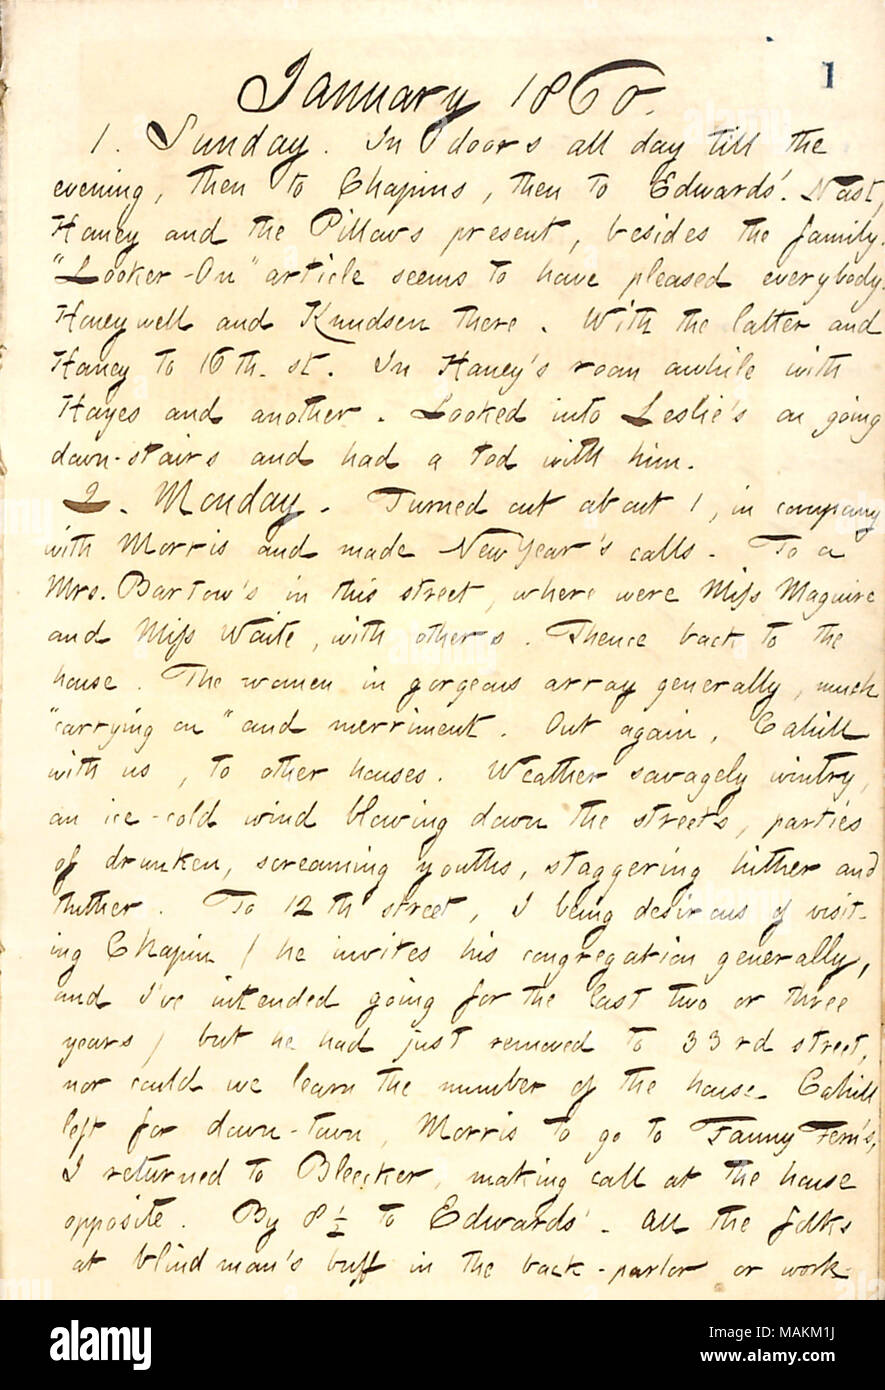 1
January 1860.
1. Sunday. In doors all day till the
evening, then to Chapins, then to Edwards'. Nast,
Haney and the Pillows present, besides the family.
"Looker-On" article seems to have pleased everybody.
Honeywell and Knudsen there. With the latter and
Haney to 16th. st. In Haney's room awhile with
Hayes and another. Looked into Leslie's on going
down-stairs and had a tod with him.
2. Monday. Turned out about 1, in company
with Morris and made New Year's calls. To a
Mrs. Bartow's in this street, where were Miss Maguire
and Miss Waite, with others. Thence back to the
house. The women in gorgeous array generally, much
"carrying on" and merriment. Out again, Cahill
with us, to other houses. Weather savagely wintry,
an ice-cold wind blowing down the streets, parties
of drunken, screaming youths, staggering hither and
thither. To 12th street, I being desirous of visit-
ing Chapin / he invites his congregation generally,
and I've intended going for the last two or three
years / but he had just removed to 33rd street,
nor could we learn the number of the house. Cahill
left for down-town, Morris to go to Fanny Fern's,
I returned to Bleecker, making call at the house
opposite. By 8 ½ to Edwards'. All the folks
at blind man's buff in the back-parlor or work-
alamy
Image ID: MAKM1J
www.alamy.com